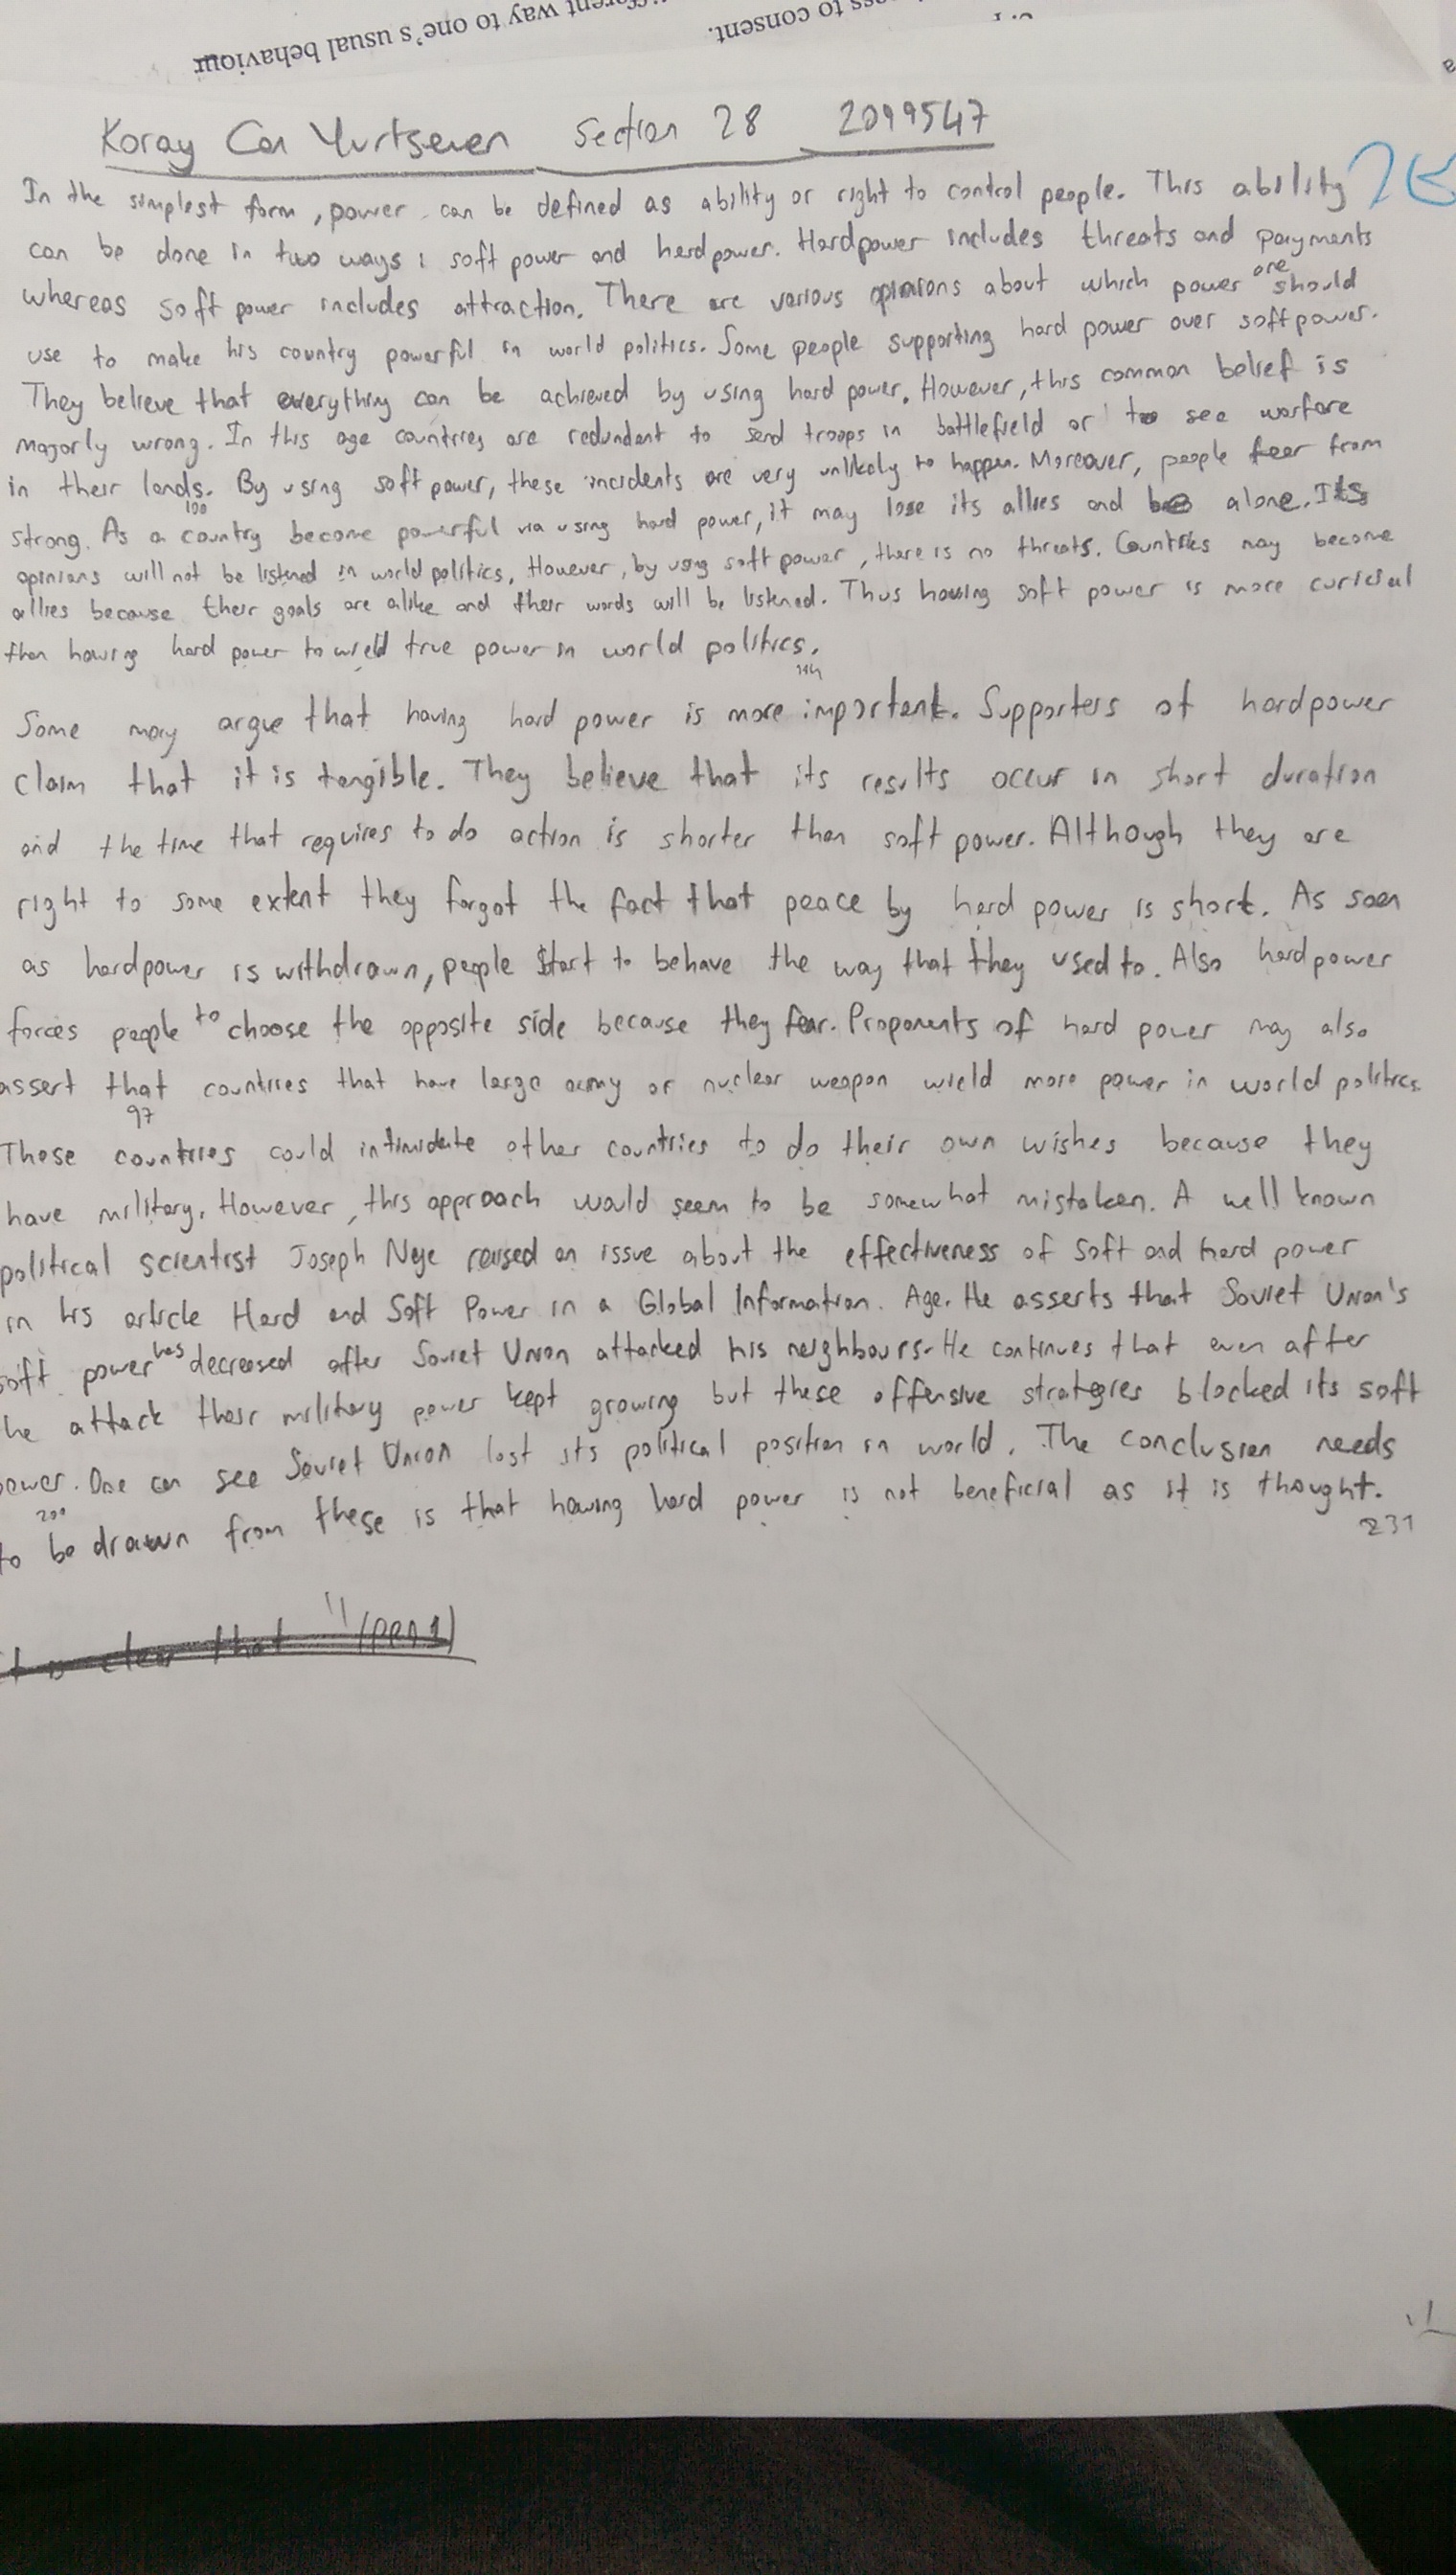 different way to one's usual behaviour
to consent.
Koray Can Yurtseven Section 28 2099547
In the simplest form, power can be defined as ability or right to control people. This ability
can be done in two ways: soft power and hardpower. Hardpower includes threats and payments
whereas soft power includes attraction. There are various opinions about which power one should
use to make his country powerful in world politics. Some people supporting hard power over softpower.
They believe that everything can be achieved by using hard power. However, this common belief is
majorly wrong. In this age countries are redundant to send troops in battlefield or to see warfare
in their lands. By using soft power, these incidents are very unlikely to happen. Moreover, people fear from
100
strong. As a country become powerful via using hard power, it may lose its allies and be alone. Its
opinions will not be listened in world politics. However, by using soft power, there is no threats. Countries may become
allies because their goals are alike and their words will be listened. Thus having soft power is more curicial
than having hard power to wield true power in world politics.
Some may argue that having hard power is more important. Supporters of hardpower
claim that it is tangible. They believe that its results occur in short duration
and the time that requires to do action is shorter than soft power. Although they are
right to some extent they forgot the fact that peace by hard power is short. As soon
as hardpower is withdrawn, people start to behave the way that they used to. Also hardpower
forces people to choose the opposite side because they fear. Proponents of hard power may also
assert that countries that have large army or nuclear weapon wield more power in world politics
97
These countries could intimidate other countries to do their own wishes because they
have military. However, this approach would seem to be somewhat mistaken. A well known
political scientist Joseph Nye raised an issue about the effectiveness of soft and hard power
in his article Hard and Soft Power in a Global Information. Age. He asserts that Soviet Union's
soft power has decreased after Soviet Union attacked his neighbours. He continues that even after
he attack their military power kept growing but these offensive strategies blocked its soft
power. One can see Soviet Union lost its political position in world. The conclusion needs
200
to be drawn from these is that having hard power is not beneficial as it is thought.
231
It is clear that